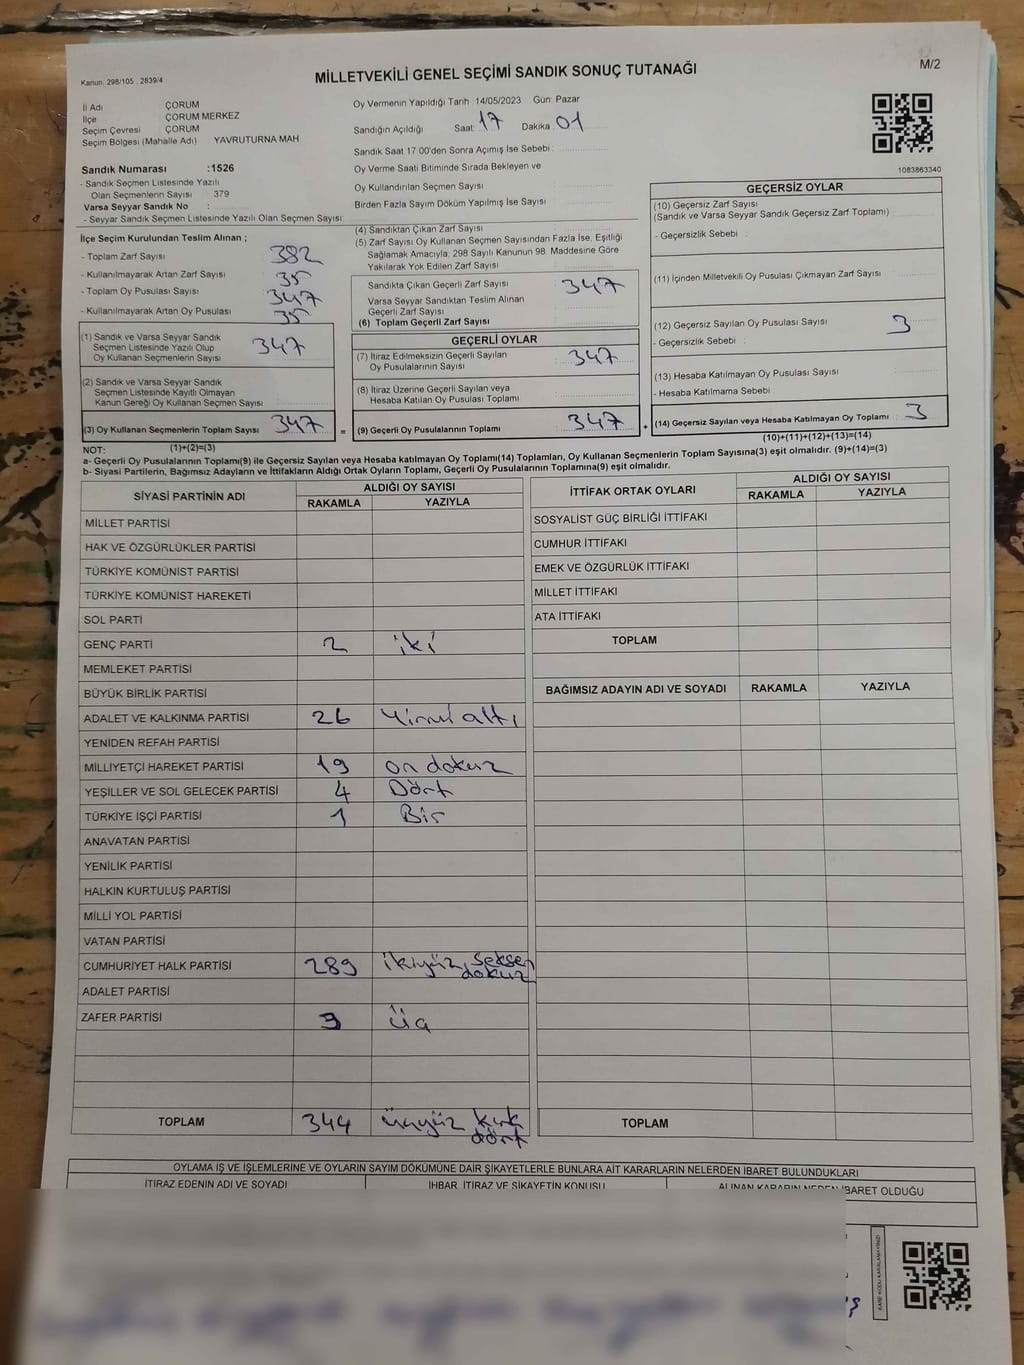 Kanun: 298/105 , 2839/4
MİLLETVEKİLİ GENEL SEÇİMİ SANDIK SONUÇ TUTANAĞI
M/2
İl Adı ÇORUM
İlçe ÇORUM MERKEZ
Seçim Çevresi ÇORUM
Seçim Bölgesi (Mahalle Adı) YAVRUTURNA MAH
Sandık Numarası :1526
- Sandık Seçmen Listesinde Yazılı
Olan Seçmenlerin Sayısı 379
Varsa Seyyar Sandık No :
- Seyyar Sandık Seçmen Listesinde Yazılı Olan Seçmen Sayısı:
Oy Vermenin Yapıldığı Tarih 14/05/2023 Gün: Pazar
Sandığın Açıldığı Saat: 17 Dakika: 01
Sandık Saat 17 00'den Sonra Açımış İse Sebebi :
Oy Verme Saati Bitiminde Sırada Bekleyen ve
Oy Kullandırılan Seçmen Sayısı :
Birden Fazla Sayım Döküm Yapılmış İse Sayısı :
1083863340
İlçe Seçim Kurulundan Teslim Alınan ;
- Toplam Zarf Sayısı : 382
- Kullanılmayarak Artan Zarf Sayısı : 35
- Toplam Oy Pusulası Sayısı : 347
- Kullanılmayarak Artan Oy Pusulası : 35
(1) Sandık ve Varsa Seyyar Sandık
Seçmen Listesinde Yazılı Olup
Oy Kullanan Seçmenlerin Sayısı : 347
(2) Sandık ve Varsa Seyyar Sandık
Seçmen Listesinde Kayıtlı Olmayan
Kanun Gereği Oy Kullanan Seçmen Sayısı :
(3) Oy Kullanan Seçmenlerin Toplam Sayısı : 347
(1)+(2)=(3)
(4) Sandıktan Çıkan Zarf Sayısı :
(5) Zarf Sayısı Oy Kullanan Seçmen Sayısından Fazla İse, Eşitliği
Sağlamak Amacıyla, 298 Sayılı Kanunun 98. Maddesine Göre
Yakılarak Yok Edilen Zarf Sayısı :
Sandıkta Çıkan Geçerli Zarf Sayısı : 347
Varsa Seyyar Sandıktan Teslim Alınan
Geçerli Zarf Sayısı :
(6) Toplam Geçerli Zarf Sayısı :
GEÇERLİ OYLAR
(7) İtiraz Edilmeksizin Geçerli Sayılan
Oy Pusulalarının Sayısı : 347
(8) İtiraz Üzerine Geçerli Sayılan veya
Hesaba Katılan Oy Pusulası Toplamı :
= (9) Geçerli Oy Pusulalarının Toplamı : 347
GEÇERSİZ OYLAR
(10) Geçersiz Zarf Sayısı :
(Sandık ve Varsa Seyyar Sandık Geçersiz Zarf Toplamı)
- Geçersizlik Sebebi :
(11) İçinden Milletvekili Oy Pusulası Çıkmayan Zarf Sayısı :
(12) Geçersiz Sayılan Oy Pusulası Sayısı : 3
- Geçersizlik Sebebi :
(13) Hesaba Katılmayan Oy Pusulası Sayısı :
- Hesaba Katılmama Sebebi :
+ (14) Geçersiz Sayılan veya Hesaba Katılmayan Oy Toplamı : 3
(10)+(11)+(12)+(13)=(14)
NOT:
a- Geçerli Oy Pusulalarının Toplamı(9) ile Geçersiz Sayılan veya Hesaba katılmayan Oy Toplamı(14) Toplamları, Oy Kullanan Seçmenlerin Toplam Sayısına(3) eşit olmalıdır. (9)+(14)=(3)
b- Siyasi Partilerin, Bağımsız Adayların ve İttifakların Aldığı Ortak Oyların Toplamı, Geçerli Oy Pusulalarının Toplamına(9) eşit olmalıdır.
SİYASİ PARTİNİN ADI ALDIĞI OY SAYISI
RAKAMLA YAZIYLA
MİLLET PARTİSİ
HAK VE ÖZGÜRLÜKLER PARTİSİ
TÜRKİYE KOMÜNİST PARTİSİ
TÜRKİYE KOMÜNİST HAREKETİ
SOL PARTİ
GENÇ PARTİ 2 iki
MEMLEKET PARTİSİ
BÜYÜK BİRLİK PARTİSİ
ADALET VE KALKINMA PARTİSİ 26 Yirmi altı
YENİDEN REFAH PARTİSİ
MİLLİYETÇİ HAREKET PARTİSİ 19 on dokuz
YEŞİLLER VE SOL GELECEK PARTİSİ 4 Dört
TÜRKİYE İŞÇİ PARTİSİ 1 Bir
ANAVATAN PARTİSİ
YENİLİK PARTİSİ
HALKIN KURTULUŞ PARTİSİ
MİLLİ YOL PARTİSİ
VATAN PARTİSİ
CUMHURİYET HALK PARTİSİ 289 ikiyüz seksen
dokuz
ADALET PARTİSİ
ZAFER PARTİSİ 3 üç
TOPLAM 344 üçyüz kırk
dört
İTTİFAK ORTAK OYLARI ALDIĞI OY SAYISI
RAKAMLA YAZIYLA
SOSYALİST GÜÇ BİRLİĞİ İTTİFAKI
CUMHUR İTTİFAKI
EMEK VE ÖZGÜRLÜK İTTİFAKI
MİLLET İTTİFAKI
ATA İTTİFAKI
TOPLAM
BAĞIMSIZ ADAYIN ADI VE SOYADI RAKAMLA YAZIYLA
TOPLAM
OYLAMA İŞ VE İŞLEMLERİNE VE OYLARIN SAYIM DÖKÜMÜNE DAİR ŞİKAYETLERLE BUNLARA AİT KARARLARIN NELERDEN İBARET BULUNDUKLARI
İTİRAZ EDENİN ADI VE SOYADI İHBAR, İTİRAZ VE ŞİKAYETİN KONUSU ALINAN KARARIN NEDEN İBARET OLDUĞU